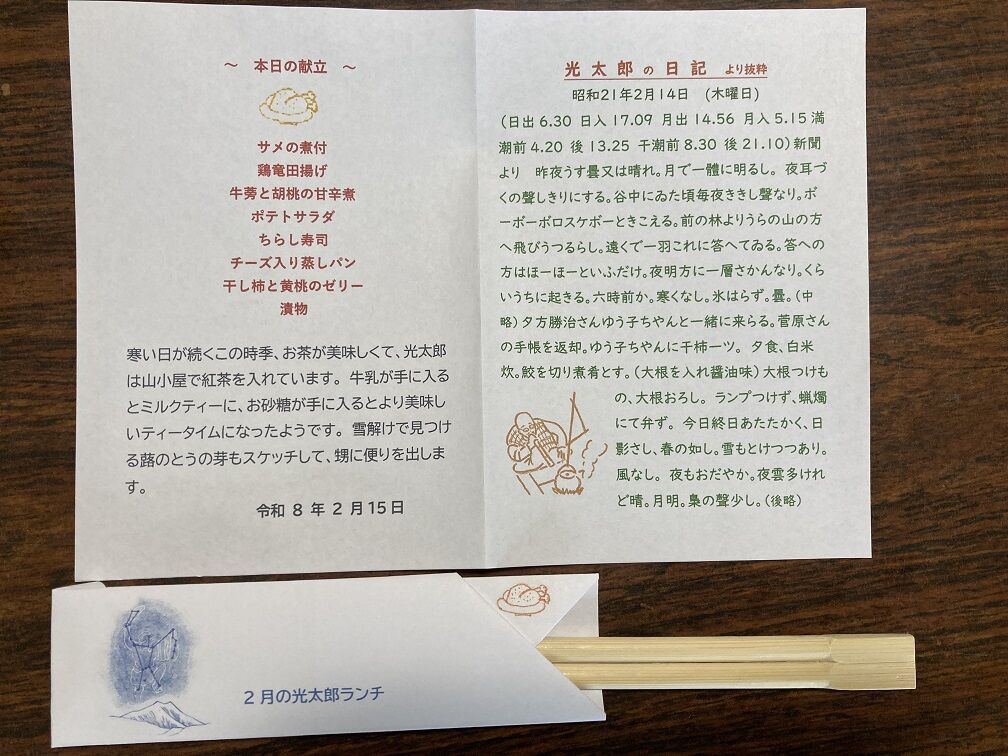 ～　本日の献立　～
サメの煮付
鶏竜田揚げ
牛蒡と胡桃の甘辛煮
ポテトサラダ
ちらし寿司
チーズ入り蒸しパン
干し柿と黄桃のゼリー
漬物
寒い日が続くこの時季、お茶が美味しくて、光太郎
は山小屋で紅茶を入れています。牛乳が手に入る
とミルクティーに、お砂糖が手に入るとより美味し
いティータイムになったようです。雪解けで見つけ
る蕗のとうの芽もスケッチして、甥に便りを出しま
す。
令和 8 年 2 月 15 日
光太郎の日記　より抜粋
昭和21年2月14日　(木曜日)
(日出 6.30 日入 17.09 月出 14.56 月入 5.15 満
潮前 4.20 後 13.25 干潮前 8.30 後 21.10) 新聞
より　昨夜うす曇又は晴れ。月で一體に明るし。夜耳づ
くの聲しきりにする。谷中にゐた頃毎夜ききし聲なり。ボ
ーボーボロスケボーときこえる。前の林よりうらの山の方
へ飛びうつるらし。遠くで一羽これに答へてゐる。答への
方はほーほーといふだけ。夜明方に一層さかんなり。くら
いうちに起きる。六時前か。寒くなし。氷はらず。曇。(中
略) 夕方勝治さんゆう子ちやんと一緒に来らる。菅原さん
の手帳を返却。ゆう子ちやんに干柿一ツ。夕食、白米
炊。鮫を切り煮肴とす。(大根を入れ醤油味) 大根つけも
の、大根おろし。ランプつけず、蝋燭
にて弁ず。今日終日あたたかく、日
影さし、春の如し。雪もとけつつあり。
風なし。夜もおだやか。夜雲多けれ
ど晴。月明。梟の聲少し。(後略)
2 月の光太郎ランチ